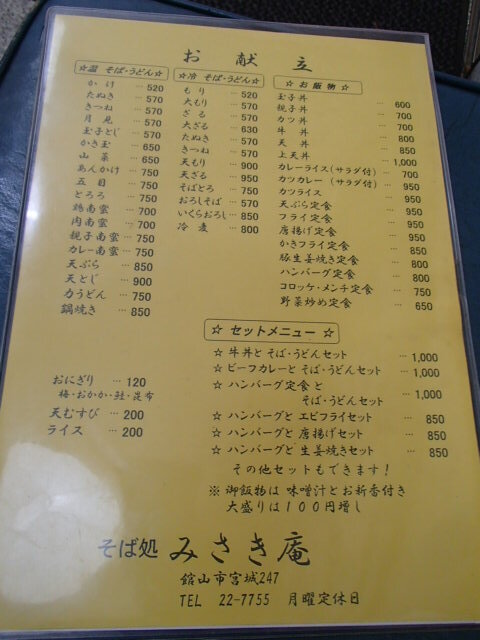 お献立
☆温 そば・うどん☆
かけ … 520
たぬき … 570
きつね … 570
月見 … 570
玉子とじ … 570
かき玉 … 650
山菜 … 650
あんかけ … 750
五目 … 750
とろろ … 750
鴨南蛮 … 700
肉南蛮 … 700
親子南蛮 … 750
カレー南蛮 … 750
天ぷら … 850
天とじ … 900
力うどん … 750
鍋焼き … 850
おにぎり … 120
梅・おかか・鮭・昆布
天むすび … 200
ライス … 200
☆冷 そば・うどん☆
もり … 520
大もり … 570
ざる … 570
大ざる … 630
たぬき … 570
きつね … 570
天もり … 900
天ざる … 950
そばとろ … 750
おろしそば … 570
いくらおろし … 850
冷麦 … 800
☆お飯物☆
玉子丼 … 600
親子丼 … 700
カツ丼 … 700
牛丼 … 800
天丼 … 800
上天丼 … 1,000
カレーライス(サラダ付) … 700
カツカレー (サラダ付) … 950
カツライス … 950
天ぷら定食 … 950
フライ定食 … 950
唐揚げ定食 … 850
かきフライ定食 … 850
豚生姜焼き定食 … 800
ハンバーグ定食 … 800
コロッケ・メンチ定食 … 750
野菜炒め定食 … 650
☆ セットメニュー ☆
☆ 牛丼と そば・うどんセット … 1,000
☆ ビーフカレーと そば・うどんセット … 1,000
☆ ハンバーグ定食 と
そば・うどんセット … 1,000
☆ ハンバーグと エビフライセット … 850
☆ ハンバーグと 唐揚げセット … 850
☆ ハンバーグと 生姜焼きセット … 850
その他セットもできます!
※ 御飯物は 味噌汁とお新香付き
大盛りは100円増し
そば処 みさき庵
館山市宮城247
TEL 22-7755 月曜定休日